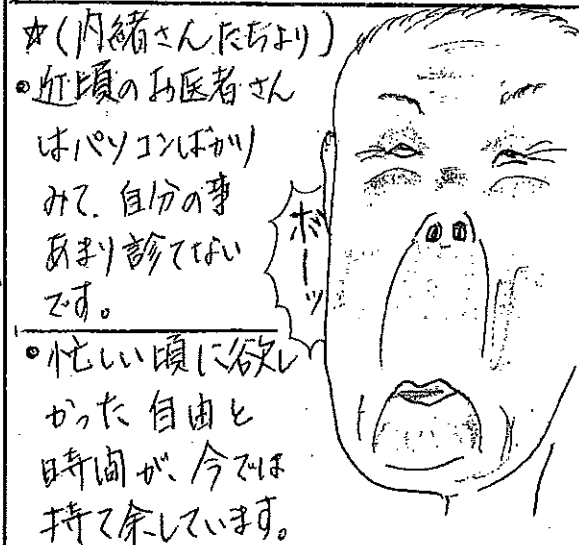 ☆(内緒さんたちより)
●近頃のお医者さん
はパソコンばかり
みて、自分の事
あまり診てない
です。
●忙しい頃に欲し
かった自由と
時間が、今では
持て余しています。
ボーッ